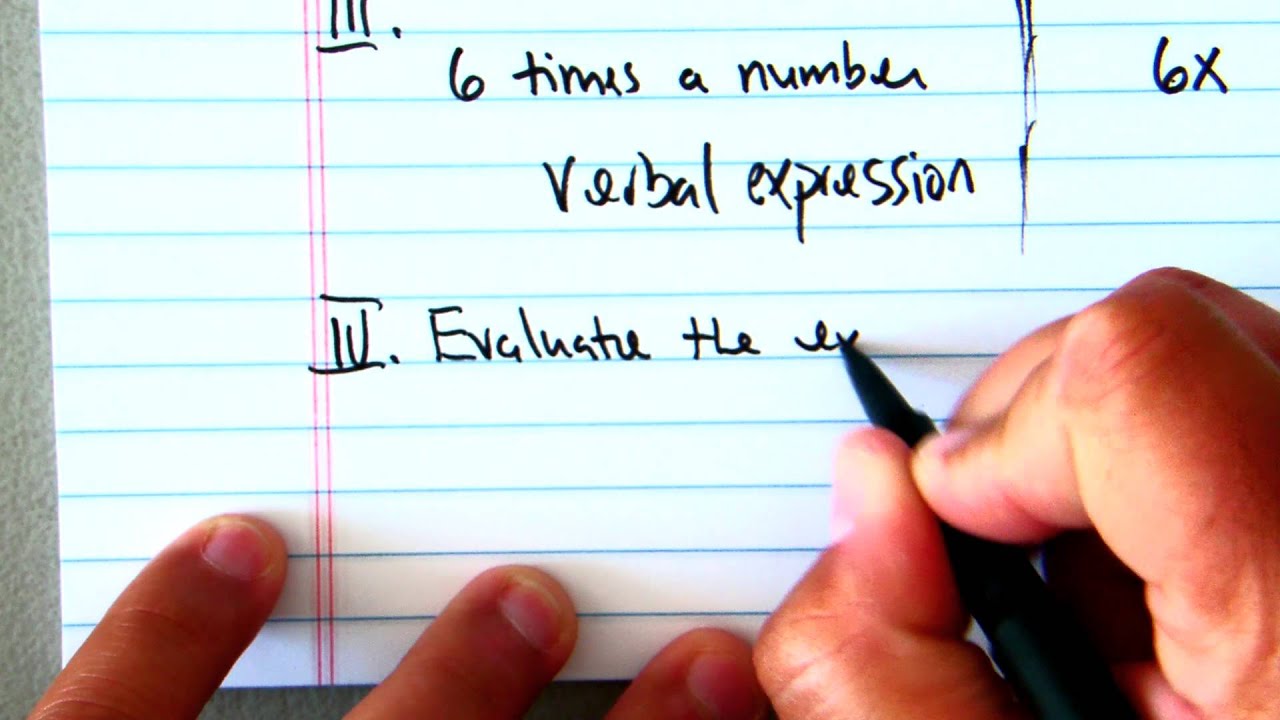 III.
6 times a number 6x
Verbal expression
IV. Evaluate the ex